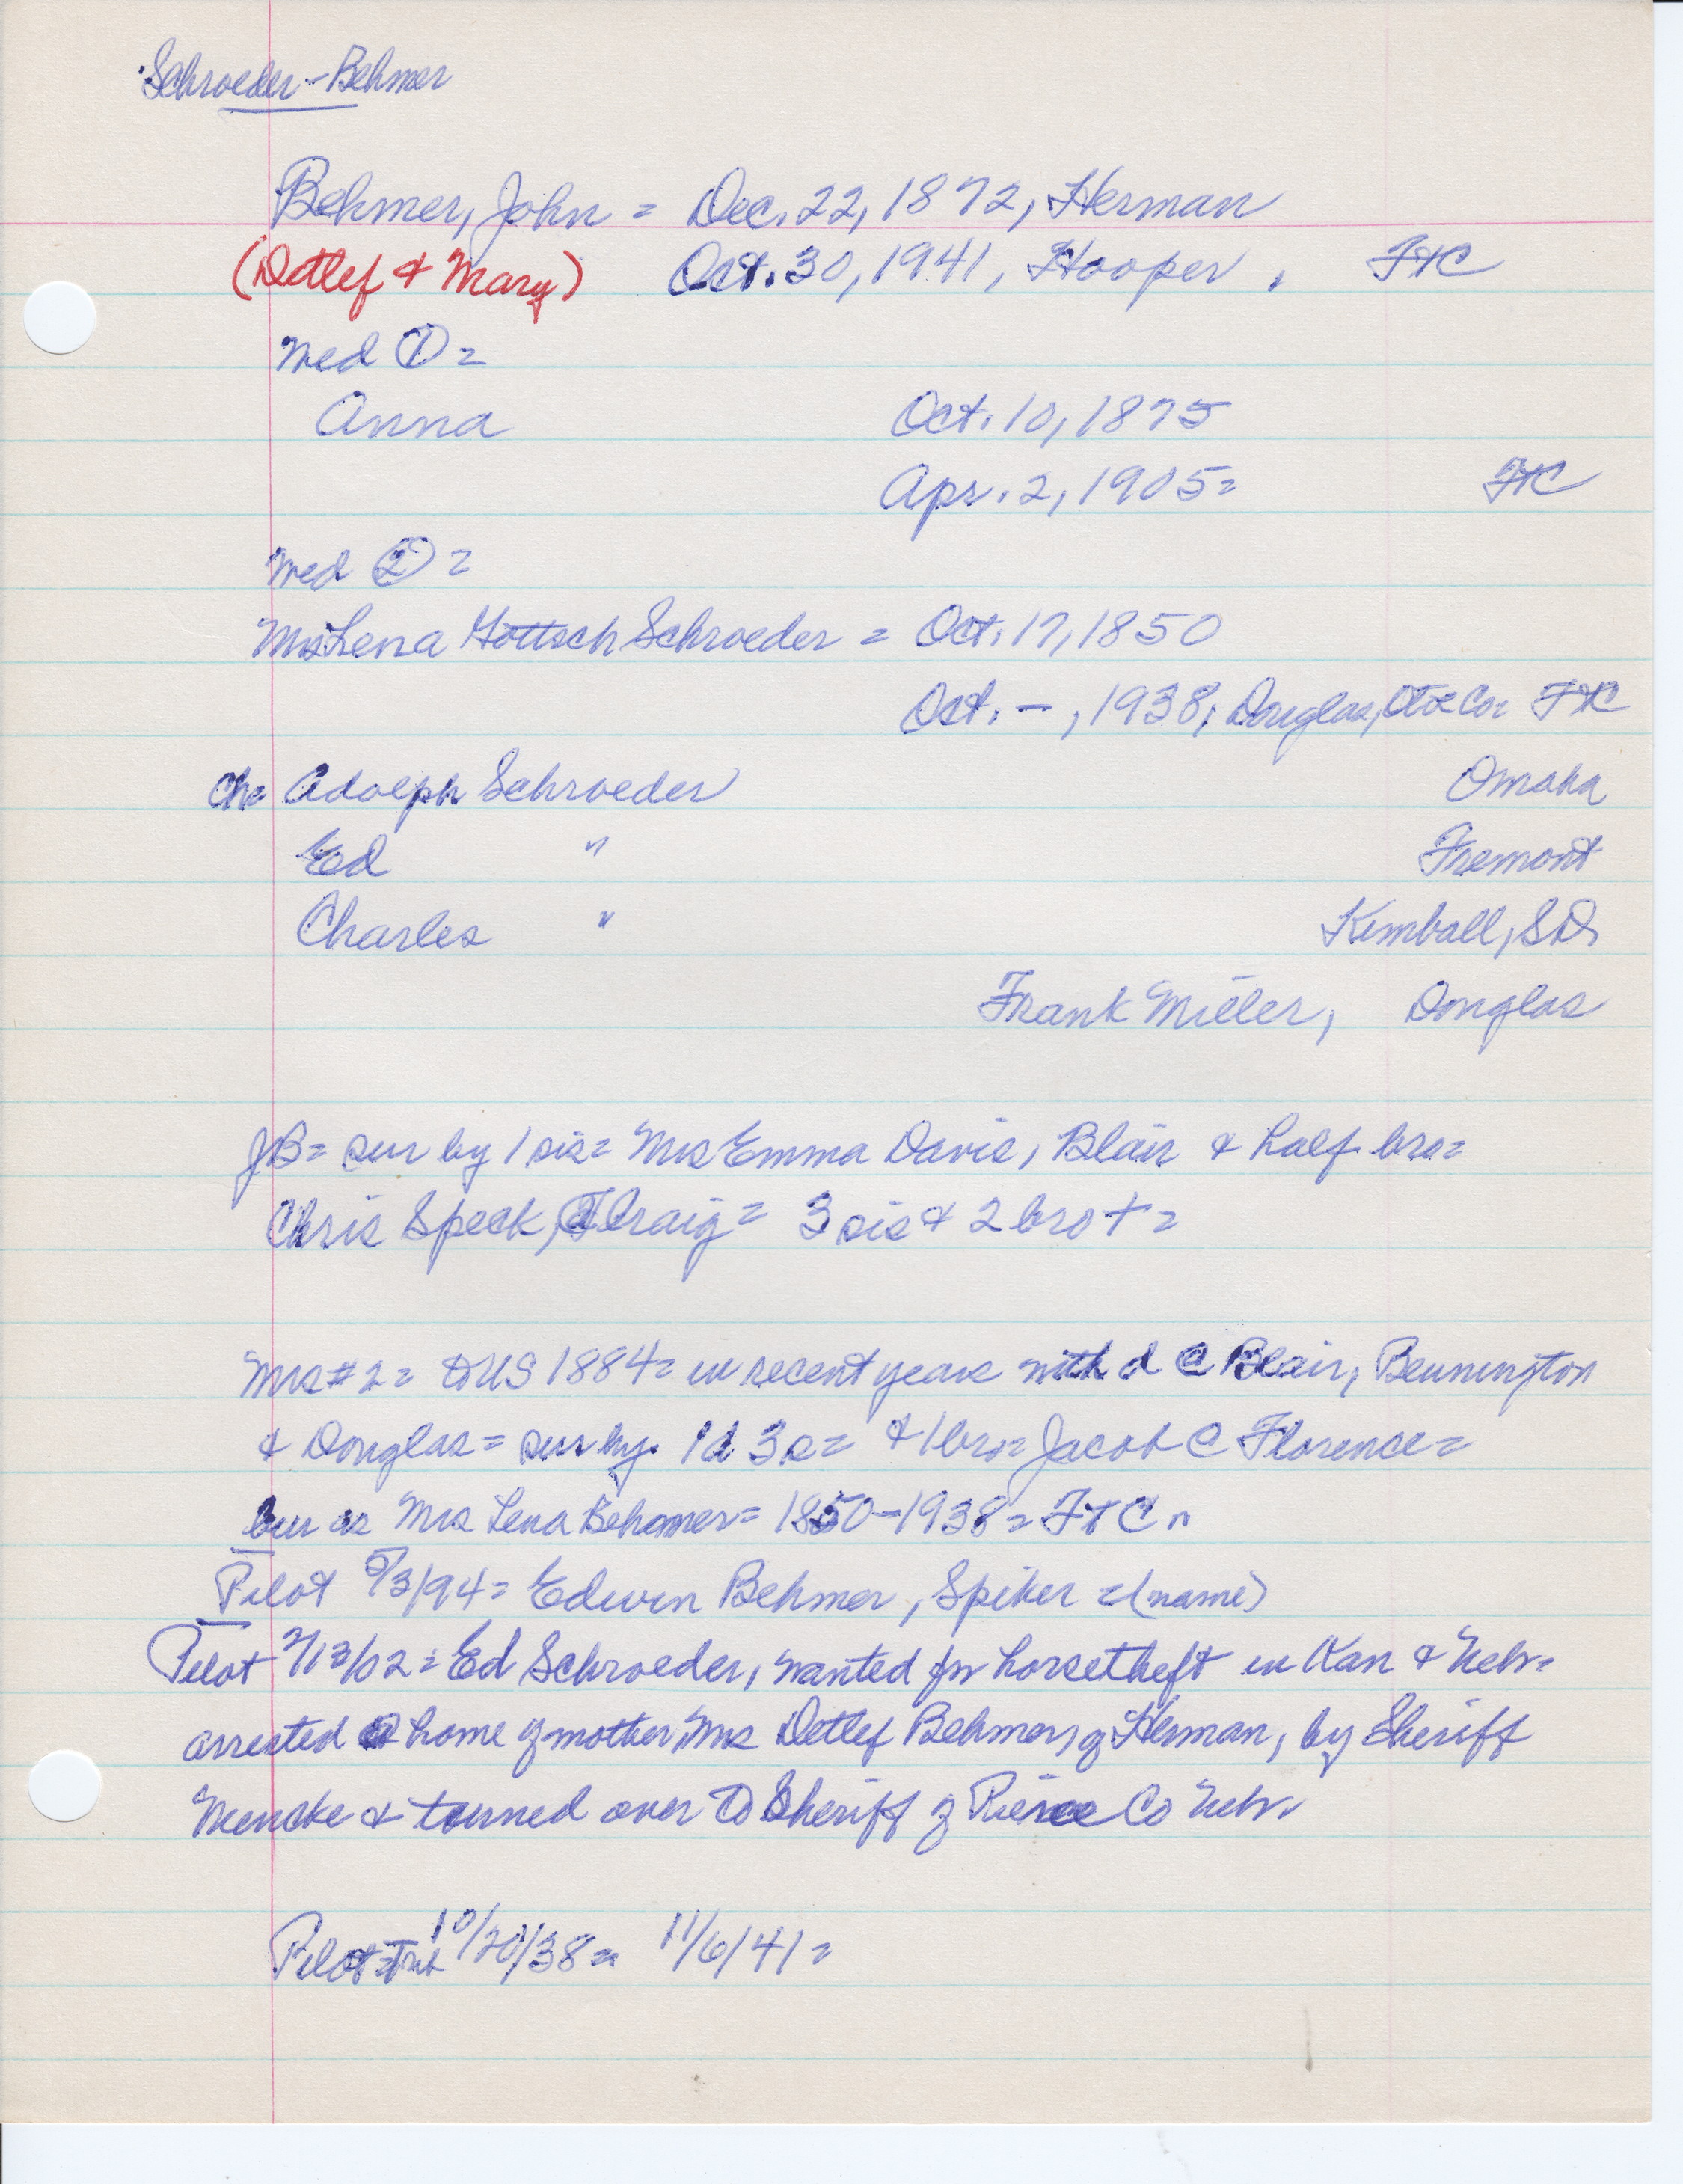 Schroeder-Behmer
Behmer, John = Dec. 22, 1872, Herman
(Detlef & Mary) Oct. 30, 1941, Hooper, FtC
Med ① =
Anna Oct. 10, 1875
Apr. 2, 1905= FtC
Med ② =
Mrs Lena Gottsch Schroeder = Oct. 17, 1850
Oct. - , 1938, Douglas, Otoe Co= FtC
Ch= Adolph Schroeder Omaha
Ed " Fremont
Charles " Kimball, SD
Frank Miller, Douglas
JB= sur by 1 sis= Mrs Emma Davis, Blair & half bro=
Chris Speck, Craig= 3 sis & 2 bro + =
Mrs #2= US 1884= in recent years with d @ Blair, Bennington
& Douglas= sur by 1d 3s= & 1 bro= Jacob @ Florence=
bur as Mrs Lena Behmer= 1850-1938= FtC
Pilot 5/3/94= Edwin Behmer, Spiker =(name)
Pilot 2/13/02= Ed Schroeder, wanted for horsetheft in Kan & Nebr=
arrested @ home of mother, Mrs Detlef Behmer, of Herman, by Sheriff
Mencke & turned over to Sheriff of Pierce Co Nebr.
Pilot=Trib 10/20/38= 11/6/41=